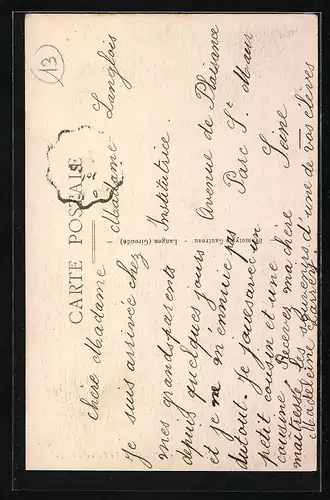 13
CARTE POSTALE
chère Madame
Je suis arrivée chez
mes grands-parents
depuis quelques jours
et je ne m'ennuie pas
du tout. Je joue avec un
petit cousin et une
cousine. Recevez ma chère
maîtresse les souvenirs d'une de vos élèves
Madeleine
Madame Langlois
Institutrice.
Avenue de Plaisance
Parc St Maur
Seine
Gautreau - Langon (Gironde)